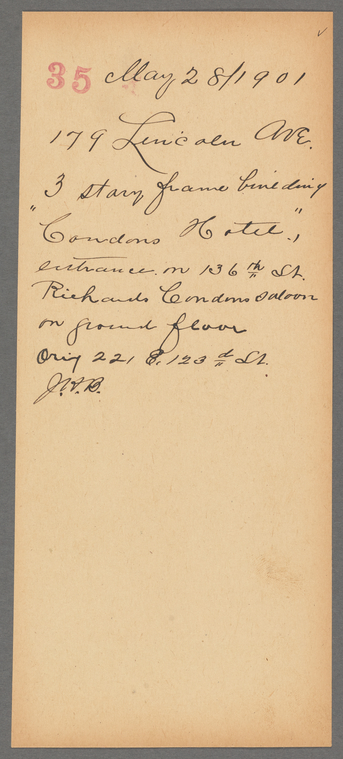 35 May 28/1901
179 Lincoln Ave.
3 story frame building
"Condons Hotel",
entrance on 136th St.
Richards Condons saloon
on ground floor
Orig 221 E. 123d St.
J.V.B.